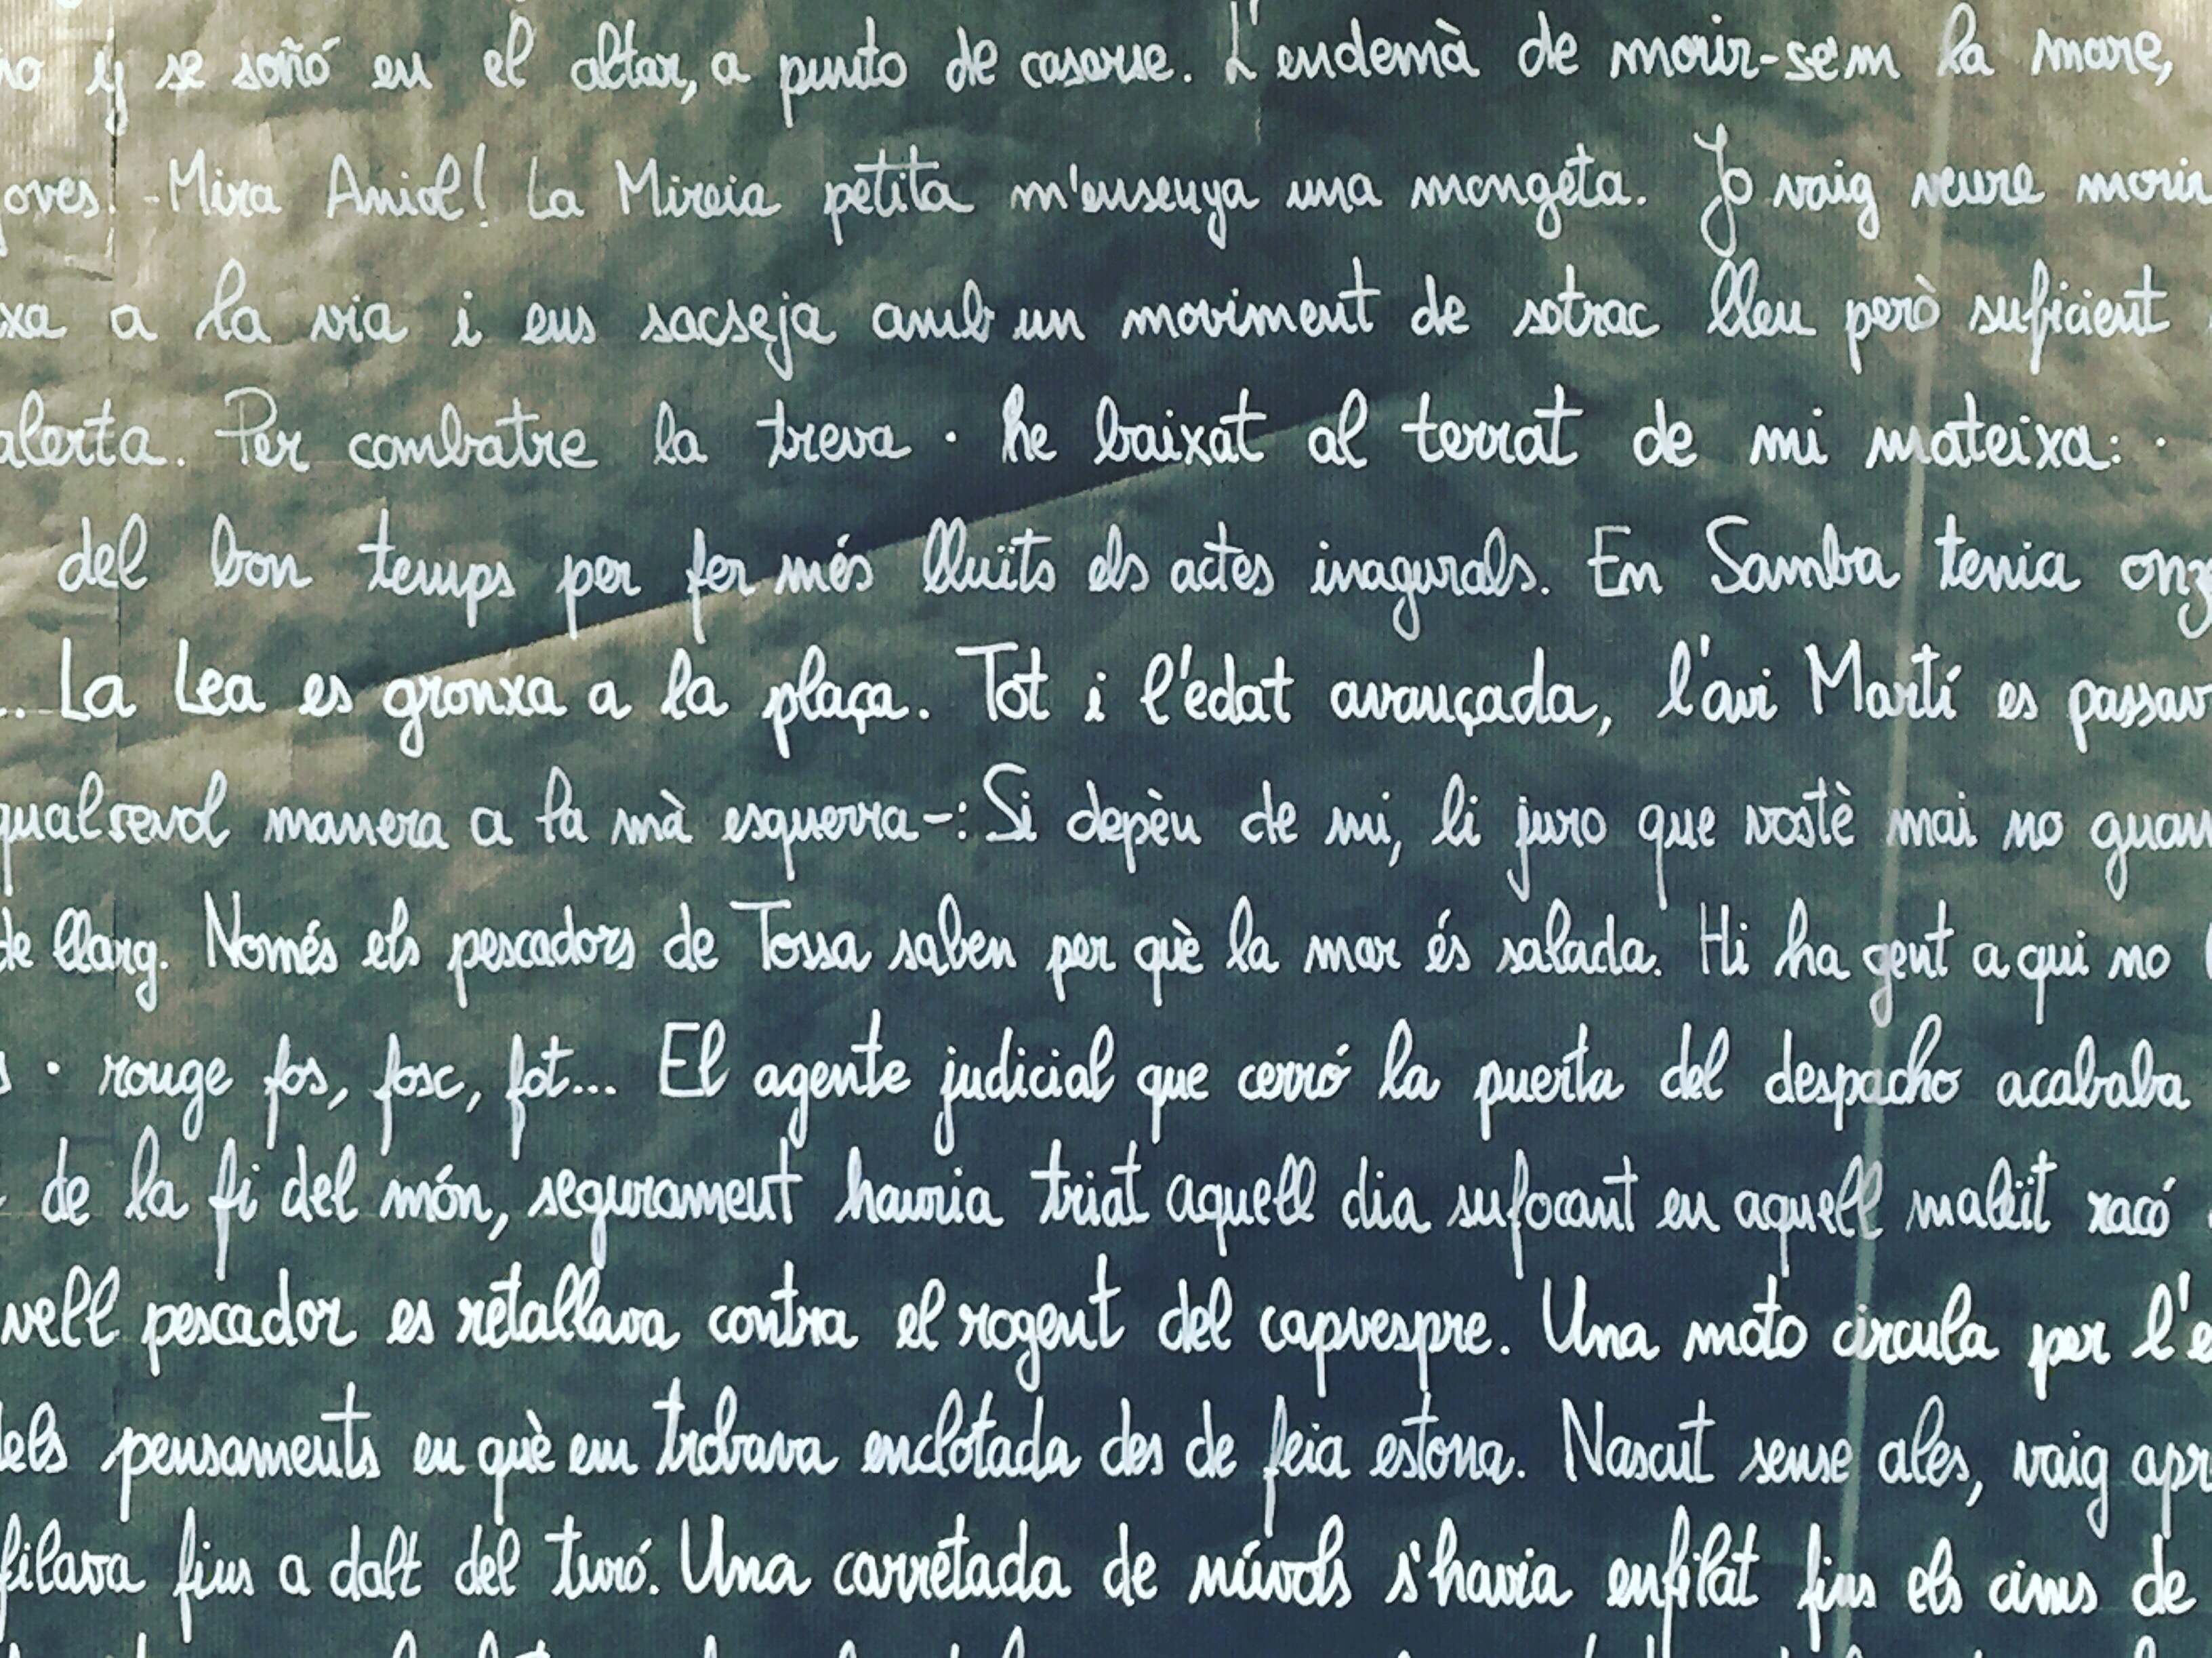 no y se soñó en el altar, a punto de casarse. L'endemà de morir-se'm la mare,
joves! -Mira Aniol! La Mireia petita m'ensenya una mongeta. Jo vaig veure morir
xa a la via i ens sacseja amb un moviment de sotrac lleu però suficient
alerta. Per combatre la treva · he baixat al terrat de mi mateixa: ·
del bon temps per fer més lluïts els actes inagurals. En Samba tenia onze
... La Lea es gronxa a la plaça. Tot i l'edat avançada, l'avi Martí es passav
qualsevol manera a la mà esquerra-: Si depèn de mi, li juro que vostè mai no guan
de llarg. Només els pescadors de Tossa saben per què la mar és salada. Hi ha gent a qui no
s · rouge fos, fosc, fot... El agente judicial que cerró la puerta del despacho acababa
de la fi del món, segurament hauria triat aquell dia sufocant en aquell maleït racó
vell pescador es retallava contra el rogent del capvespre. Una moto circula per l'e
dels pensaments en què em trobava enclotada des de feia estona. Nascut sense ales, vaig apr
filava fins a dalt del turó. Una carretada de núvols s'havia enfilat fins els cims de